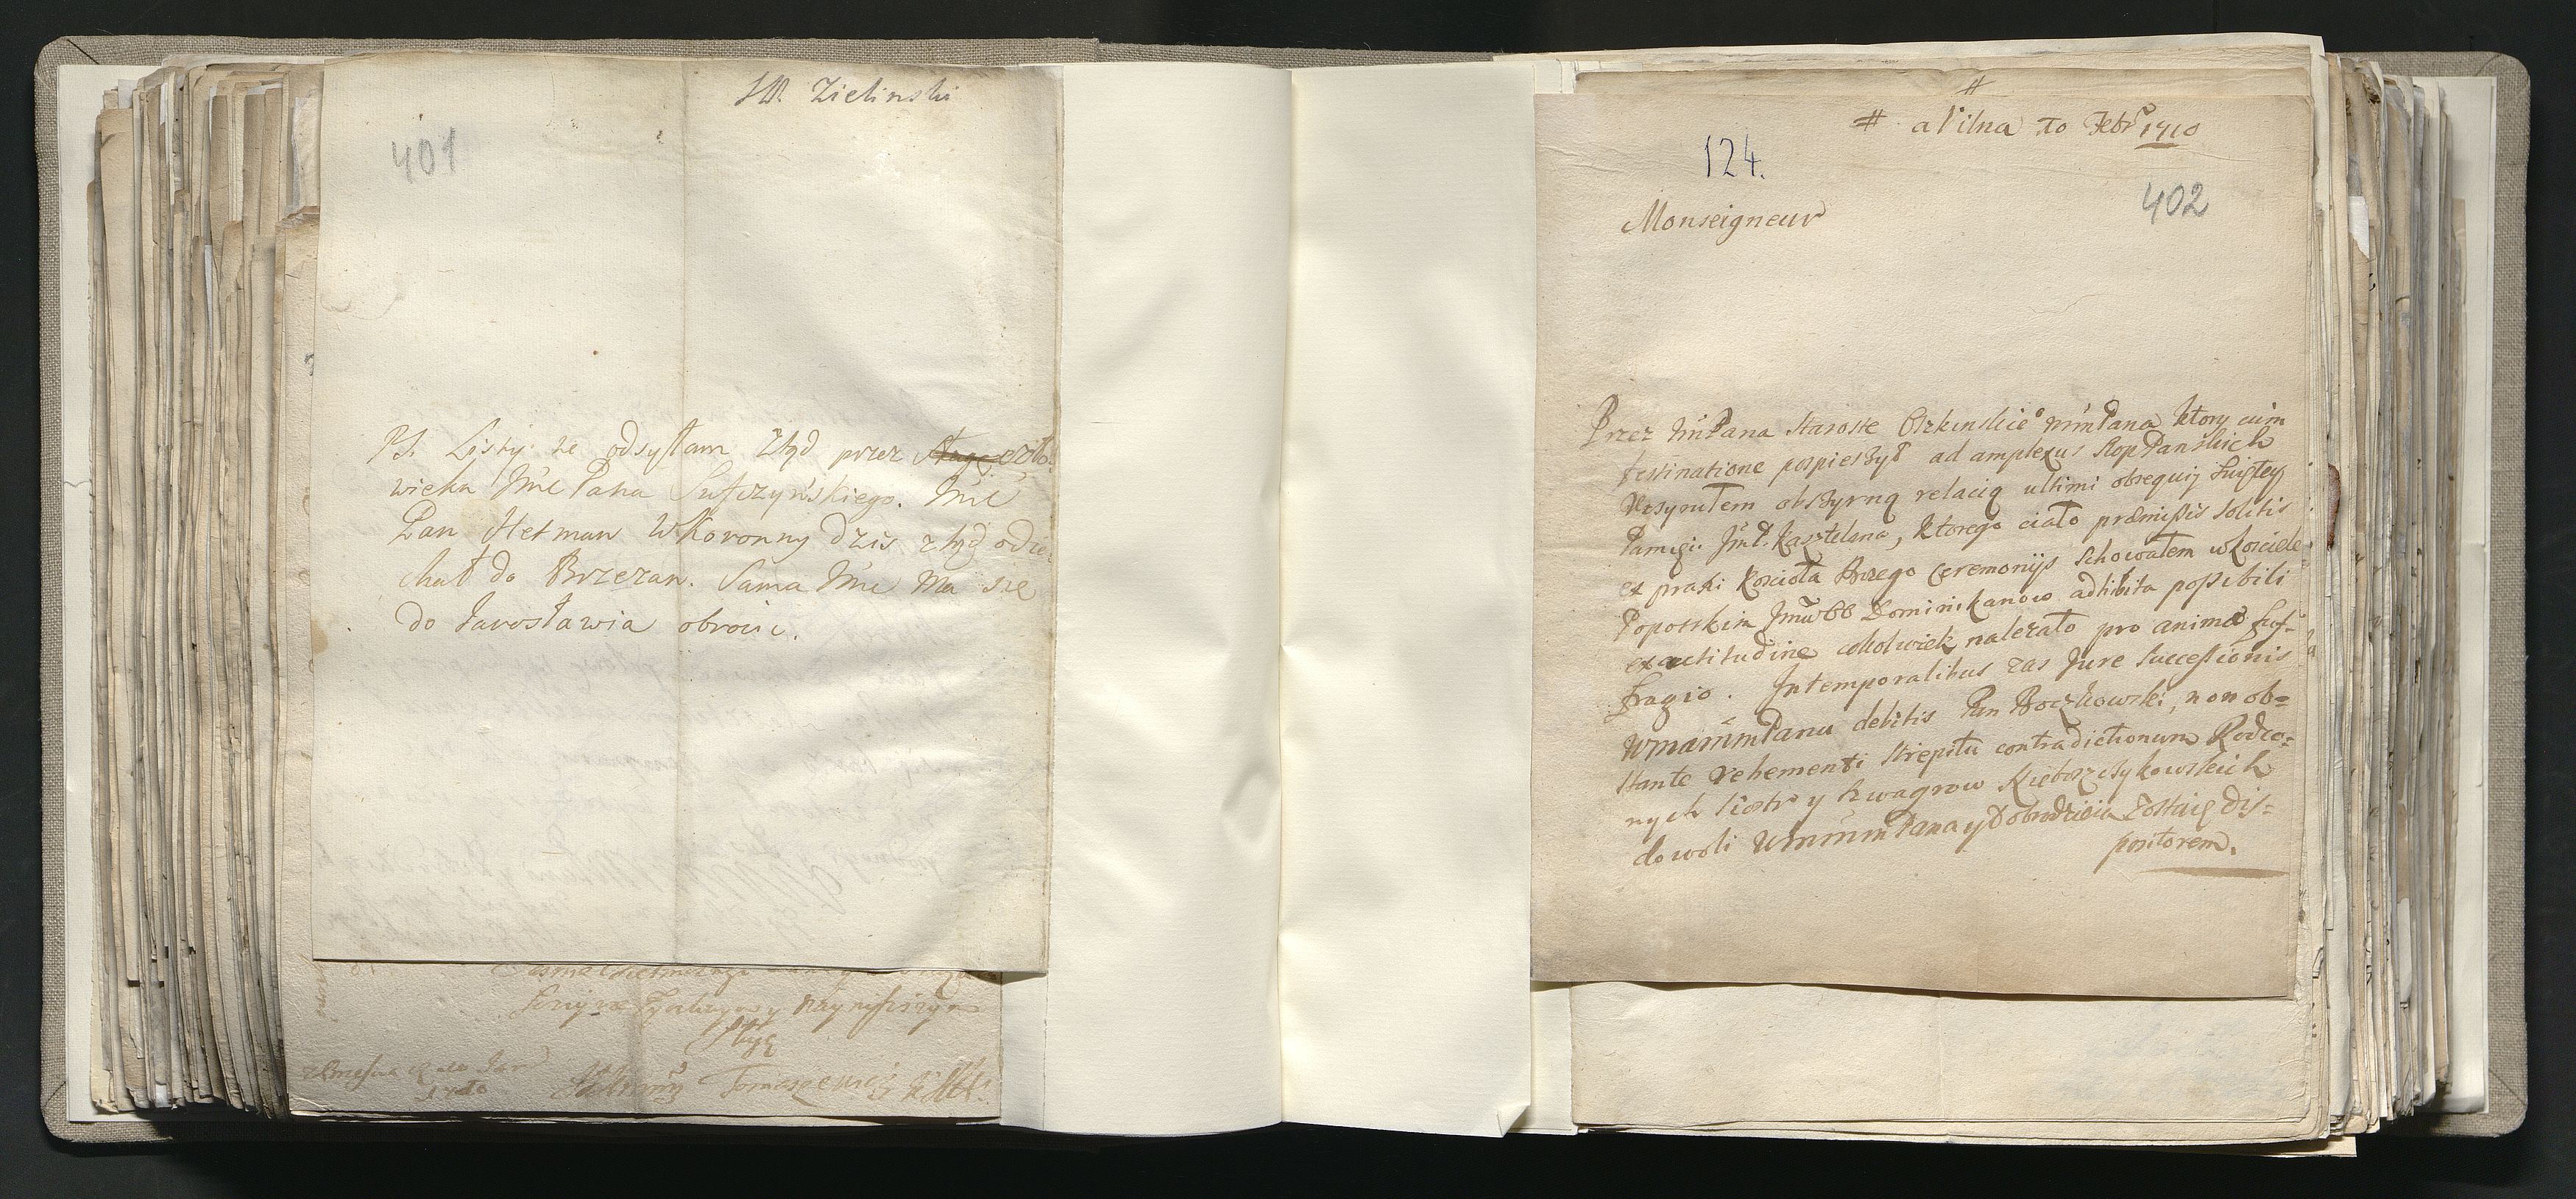 JP. Zielinski
401
PS. Listy ze odsyłam ztąd przez sługę czło-
wieka Jmć Pana Sufczyńskiego. Jmć
Pan Hetman WKoronny dzis ztąd odie-
chał do Brzezan. Sama Jmć ma się
do Jarosławia obrocic.
Sługą
1710
# a Vilna 10 Febr 1710
124.
402
Monseigneur
Przez JmPana Staroste Oszkinskie° mmPana ktory cum
festinatione pospieszył ad amplexus StopPanskich
Uczyniłem obszyrną relacią ultimi obsequij Swiętey
Pamięci JmP. Kasztelana, ktorego ciało præmissis solitis
ex praxi Koscioła Bozego Ceremonijs Schowałem w Kosciele
Poporskim Dominikanow adhibita possibili
exactitudine cokolwiek nalezało pro animæ suf-
fragio. In temporalibus zas Jure Successionis
WmmPanu debitis Pan Boczkowski, non ob=
stante vehementi strepitu contradictionum Rodzo=
nych Siostr y Szwagrow
do woli WmmPana y Dobrodzieia zostaię dis=
positorem.